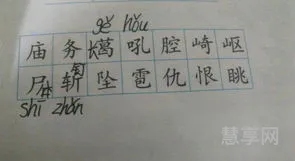 gě hǒu
庙 务 葛 吼 腔 崎 岖
尸 体 斩 坠 雹 仇 恨 眺
shī zhǎn
慧享网